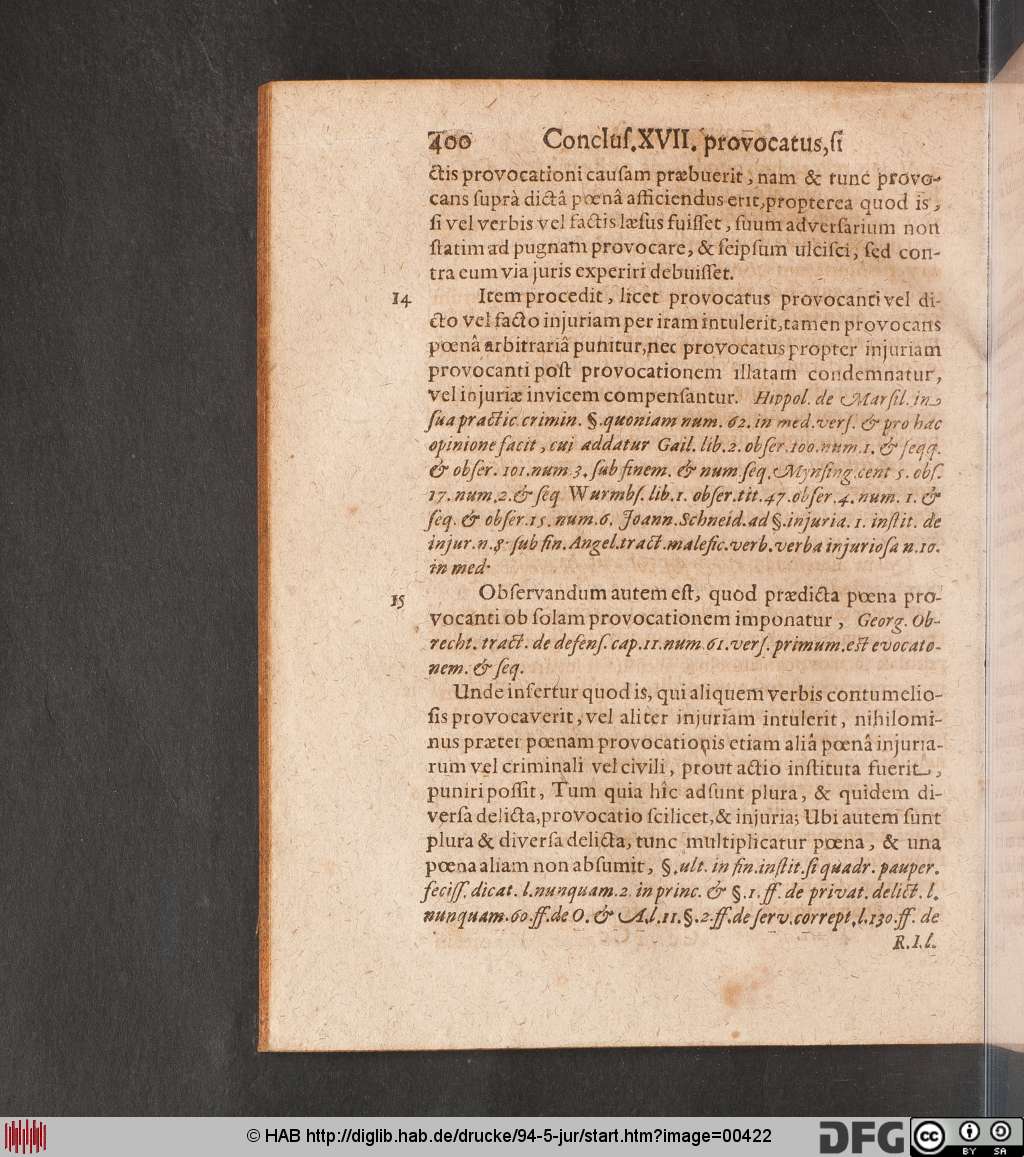 400 Concluſ. XVII. provocatus, ſi
ctis provocationi cauſam præbuerit, nam & tunc provo-
cans ſuprà dictâ pœnâ afficiendus erit, propterea quod is,
ſi vel verbis vel factis læſus fuiſſet, ſuum adverſarium non
ſtatim ad pugnam provocare, & ſeipſum ulciſci, ſed con-
tra eum via juris experiri debuiſſet.
14 Item procedit, licet provocatus provocanti vel di-
cto vel facto injuriam per iram intulerit, tamen provocans
pœnâ arbitrariâ punitur, nec provocatus propter injuriam
provocanti poſt provocationem illatam condemnatur,
vel injuriæ invicem compenſantur. Hippol. de Marſil. in
ſua practic. crimin. §. quoniam num. 62. in med. verſ. & pro hac
opinione facit, cui addatur Gail. lib. 2. obſer. 100. num. 1. & ſeqq.
& obſer. 101. num. 3. ſub finem. & num. ſeq. Mynſing. cent 5. obſ.
17. num. 2. & ſeq Wurmbſ. lib. 1. obſer. tit. 47. obſer. 4. num. 1. &
ſeq. & obſer. 15. num. 6. Joann. Schneid. ad §. injuria. 1. inſtit. de
injur. n. 8. ſub fin. Angel. tract. malefic. verb. verba injurioſa n. 10.
in med.
15 Obſervandum autem eſt, quod prædicta pœna pro-
vocanti ob ſolam provocationem imponatur, Georg. Ob-
recht. tract. de defenſ. cap. 11. num. 61. verſ. primum. eſt evocato-
nem. & ſeq.
Unde infertur quod is, qui aliquem verbis contumelio-
ſis provocaverit, vel aliter injuriam intulerit, nihilomi-
nus præter pœnam provocationis etiam aliâ pœnâ injuria-
rum vel criminali vel civili, prout actio inſtituta fuerit,
puniri poſſit, Tum quia hîc adſunt plura, & quidem di-
verſa delicta, provocatio ſcilicet, & injuria; Ubi autem ſunt
plura & diverſa delicta, tunc multiplicatur pœna, & una
pœna aliam non abſumit, §. ult. in fin. inſtit. ſi quadr. pauper.
feciſſ. dicat. l. nunquam. 2. in princ. & §. 1. ff. de privat. delict. l.
nunquam. 60. ff. de O. & A. l. 11. §. 2. ff. de ſerv. corrept. l. 130. ff. de
R. I. l.
© HAB http://diglib.hab.de/drucke/94-5-jur/start.htm?image=00422
DFG
cc BY SA